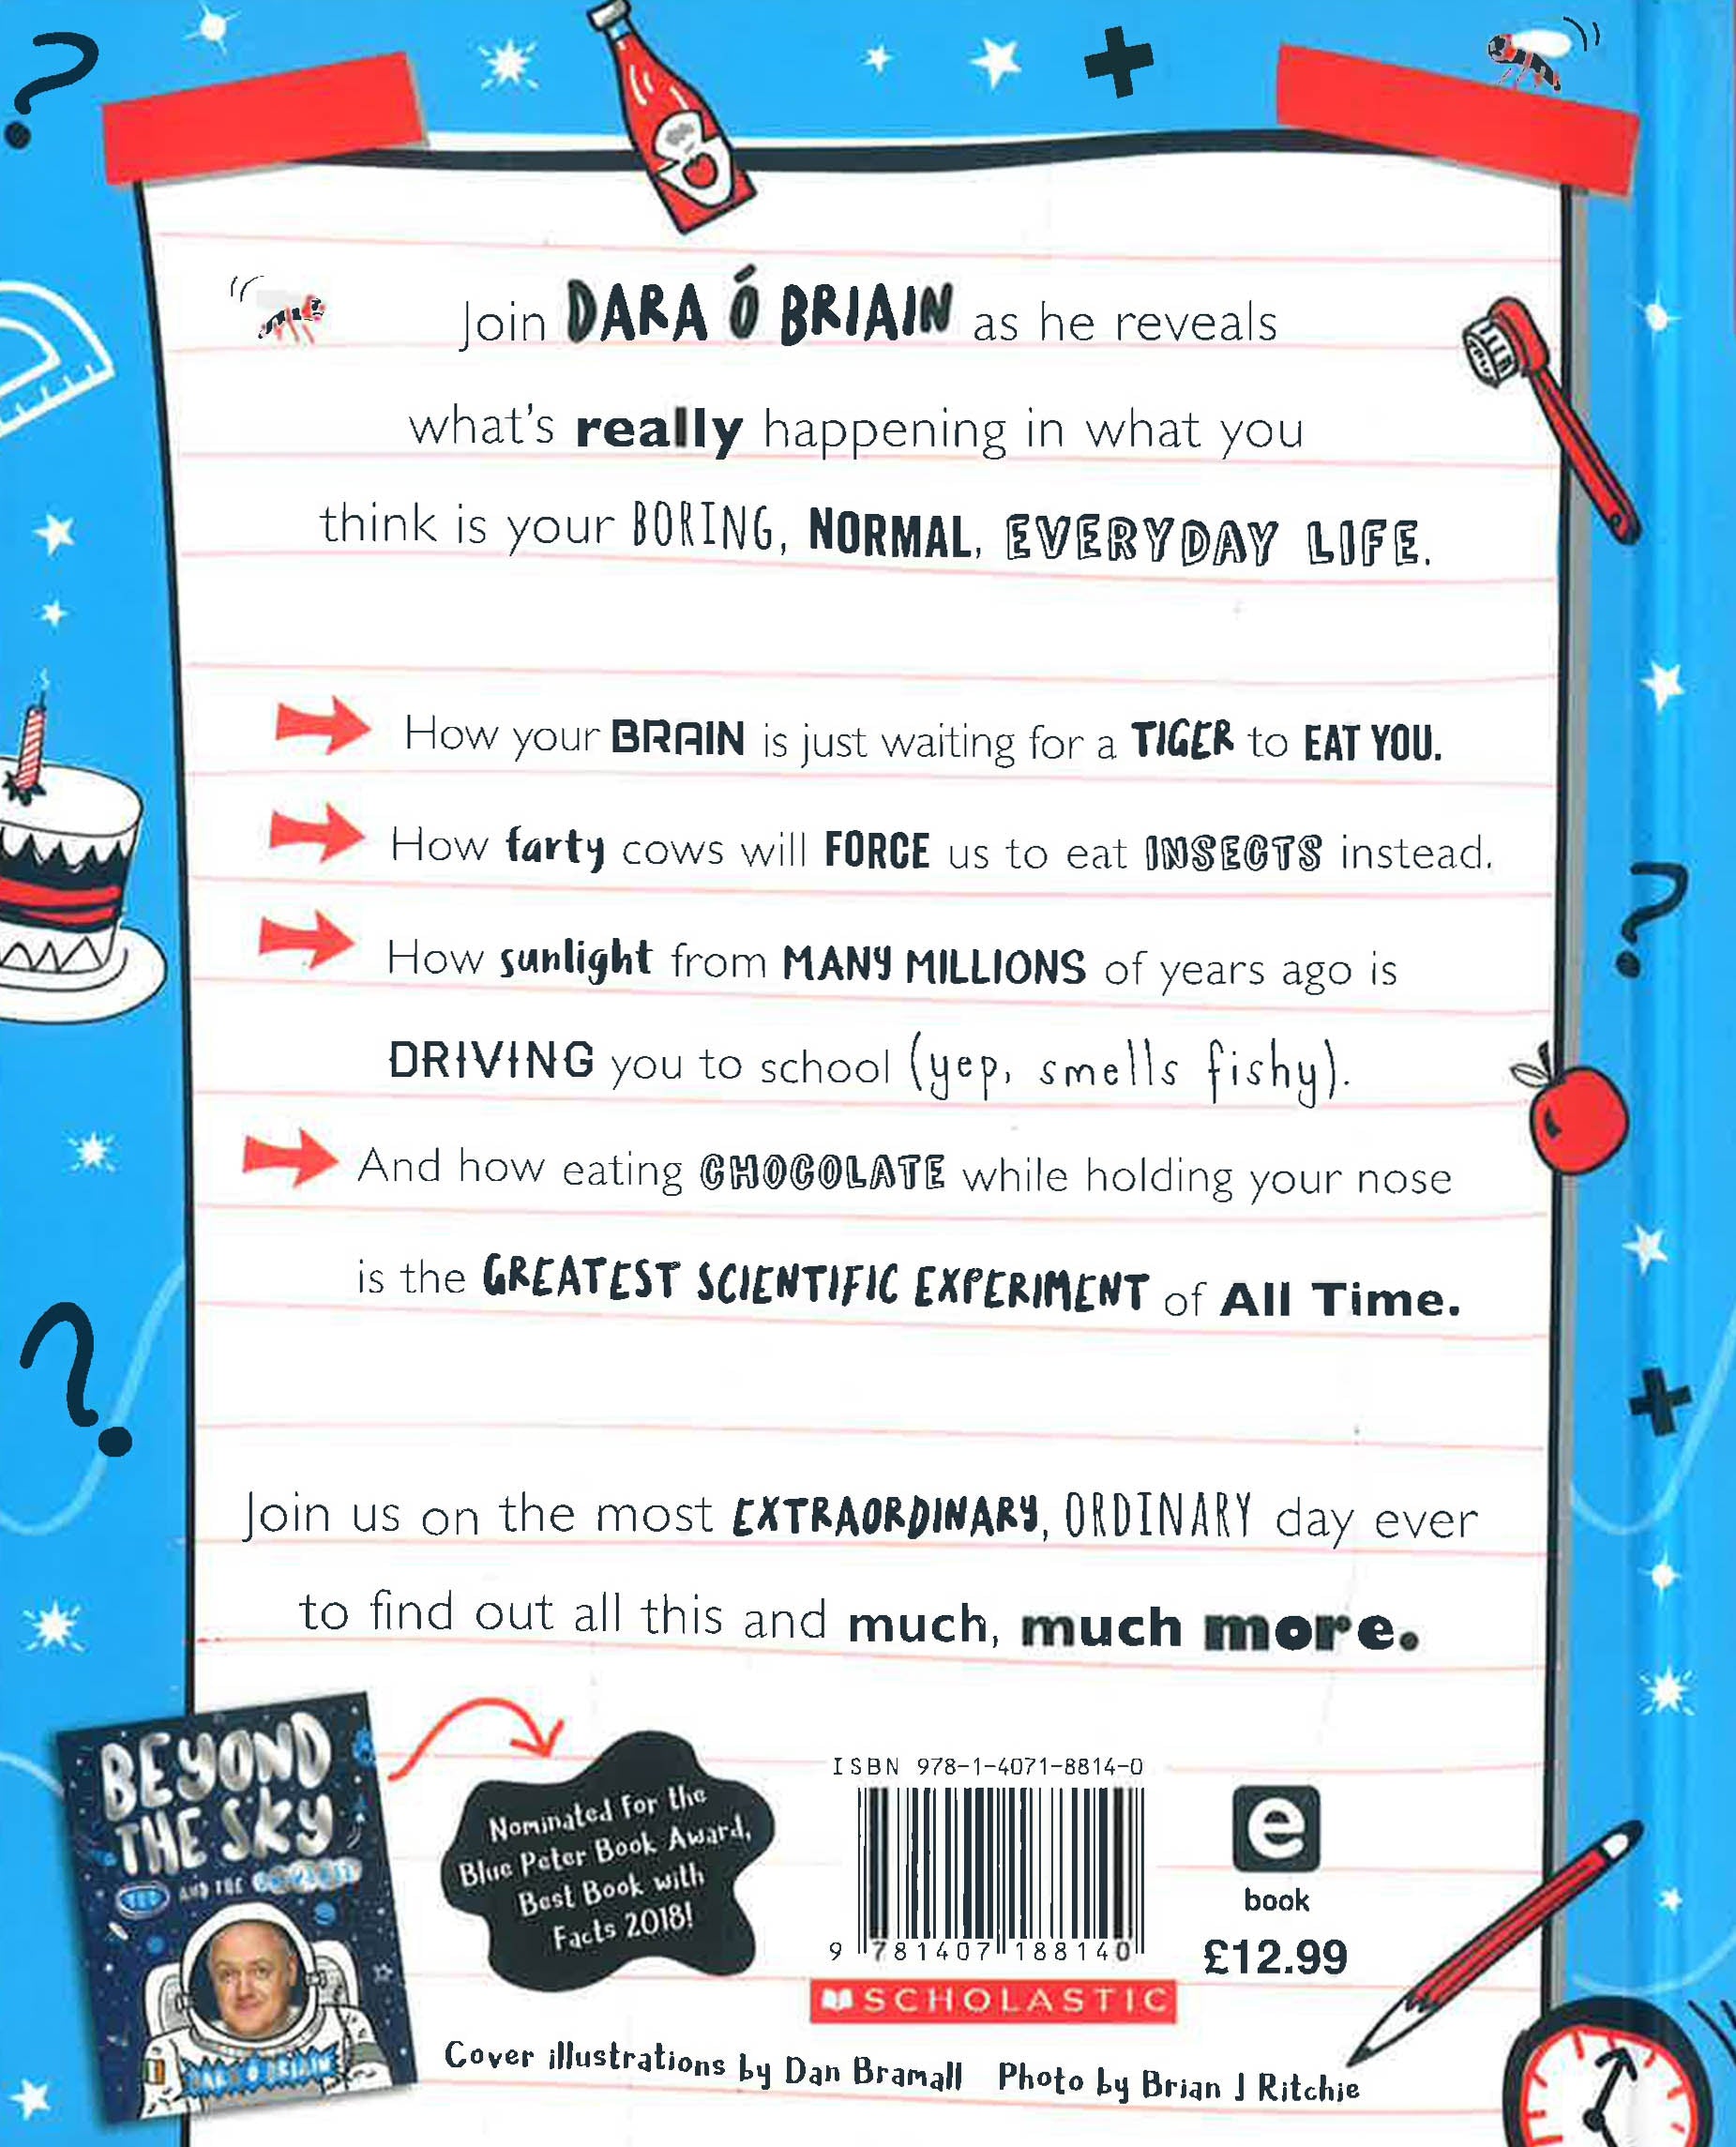 Join DARA Ó BRIAIN as he reveals
what's really happening in what you
think is your BORING, NORMAL, EVERYDAY LIFE.
How your BRAIN is just waiting for a TIGER to EAT YOU.
How farty cows will FORCE us to eat INSECTS instead.
How sunlight from MANY MILLIONS of years ago is
DRIVING you to school (yep, smells fishy).
And how eating CHOCOLATE while holding your nose
is the GREATEST SCIENTIFIC EXPERIMENT of All Time.
Join us on the most EXTRAORDINARY, ORDINARY day ever
to find out all this and much, much more.
BEYOND
THE SKY
YOU AND THE
DARA Ó BRIAIN
Nominated For the
Blue Peter Book Award,
Best Book with
Facts 2018!
ISBN 978-1-4071-8814-0
9 781407 188140
SCHOLASTIC
e
book
£12.99
Cover illustrations by Dan Bramall Photo by Brian J Ritchie